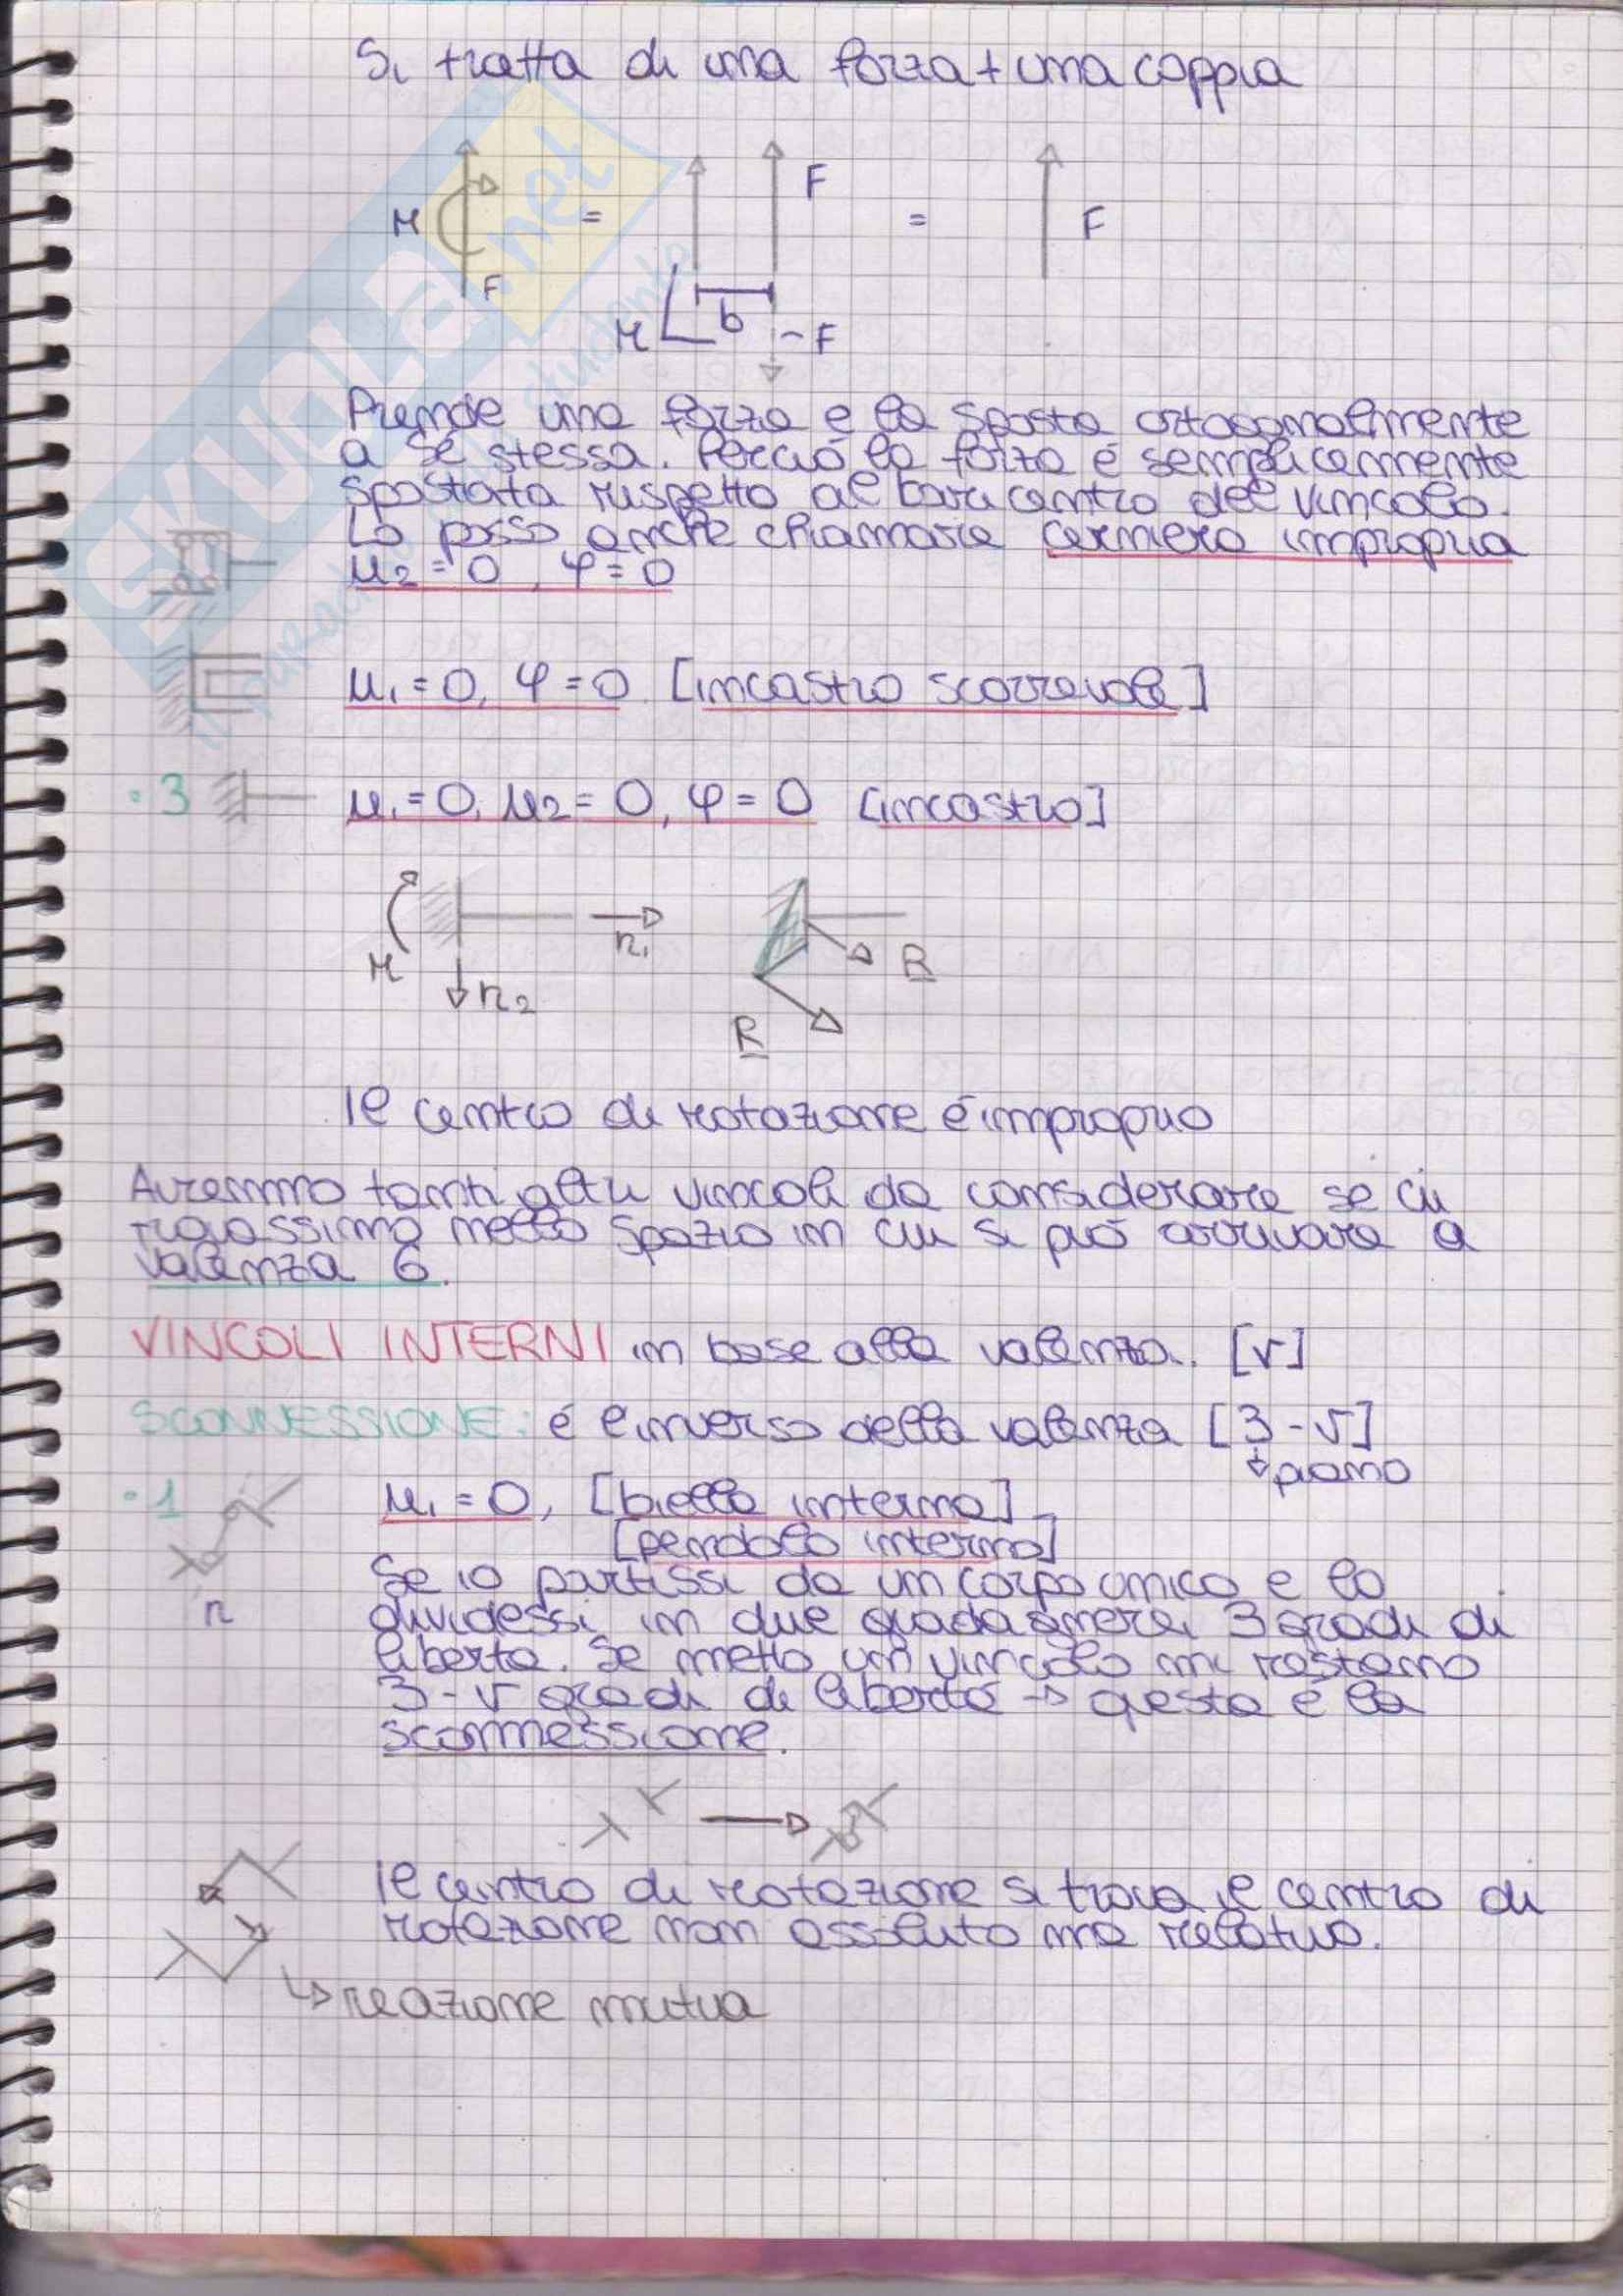 Si tratta di una forza + una coppia
M F = F = F
M b -F
Prende una forza e la sposta ortogonalmente
a sé stessa. Perciò la forza è semplicemente
spostata rispetto al baricentro del vincolo.
Lo posso anche chiamare cerniera impropria
u2 = 0, φ = 0
u1 = 0, φ = 0 [incastro scorrevole]
• 3 u1 = 0, u2 = 0, φ = 0 [incastro]
M r2 r1 R R
Il centro di rotazione è improprio
Avremmo tanti altri vincoli da considerare se ci
rifossimo nello spazio in cui si può arrivare a
valenza 6.
VINCOLI INTERNI in base alla valenza. [v]
SCONNESSIONE: è l'inverso della valenza [3 - v]
↓ piano
• 1 u1 = 0, [biella interna]
[pendolo interno]
r
Se io partissi da un corpo unico e lo
dividessi in due guadagnerei 3 gradi di
libertà. Se metto un vincolo mi restano
3 - v gradi di libertà → questa è la
sconnessione.
Il centro di rotazione si trova il centro di
rotazione non assoluto ma relativo.
↳ reazione mutua
SKUOLA.net